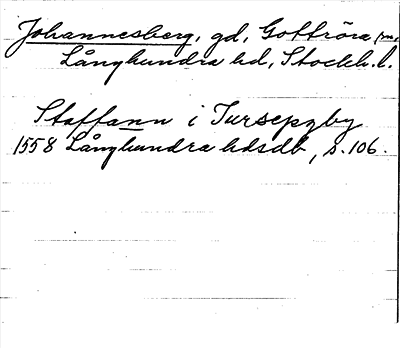 Johannesberg, gd, Gottröra sn,
Långhundra hd, Stockh. l.
Staffann i Tursepgby
1558 Långhundra hdsdb, s. 106.